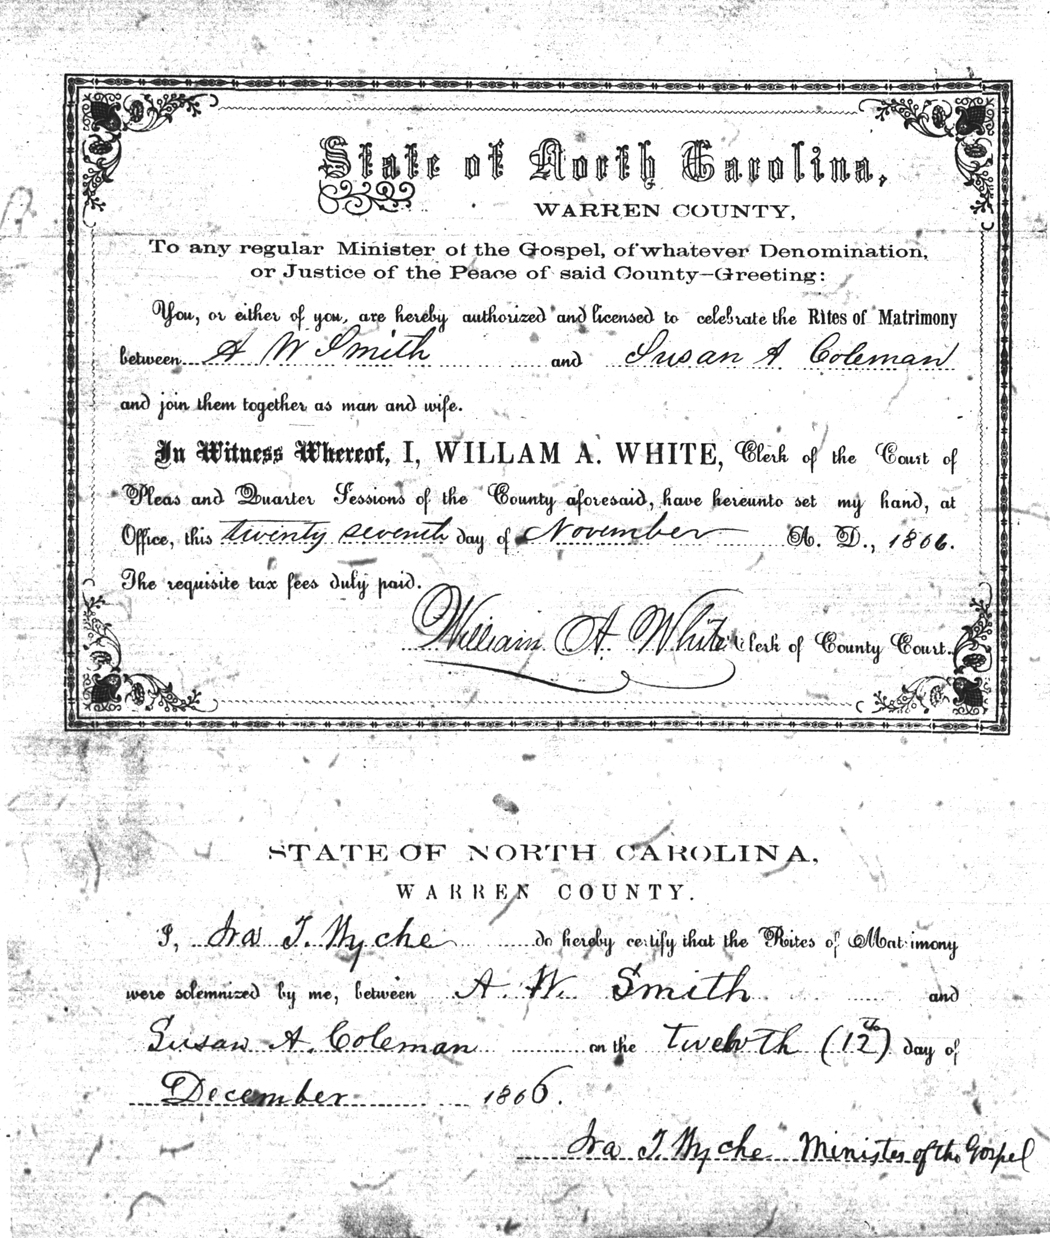 State of North Carolina,
WARREN COUNTY,
To any regular Minister of the Gospel, of whatever Denomination,
or Justice of the Peace of said County—Greeting:
You, or either of you, are hereby authorized and licensed to celebrate the Rites of Matrimony
between A W Smith and Susan A Coleman
and join them together as man and wife.
In Witness Whereof, I, WILLAM A. WHITE, Clerk of the Court of
Pleas and Quarter Sessions of the County aforesaid, have hereunto set my hand, at
Office, this twenty seventh day of November A. D., 1866.
The requisite tax fees duly paid.
William A White Clerk of County Court.
STATE OF NORTH CAROLINA,
WARREN COUNTY.
I, Ira T. Wyche do hereby certify that the Rites of Matrimony
were solemnized by me, between A. W. Smith and
Susan A. Coleman on the twelvth (12th) day of
December 1866.
Ira T. Wyche Minister of the Gospel